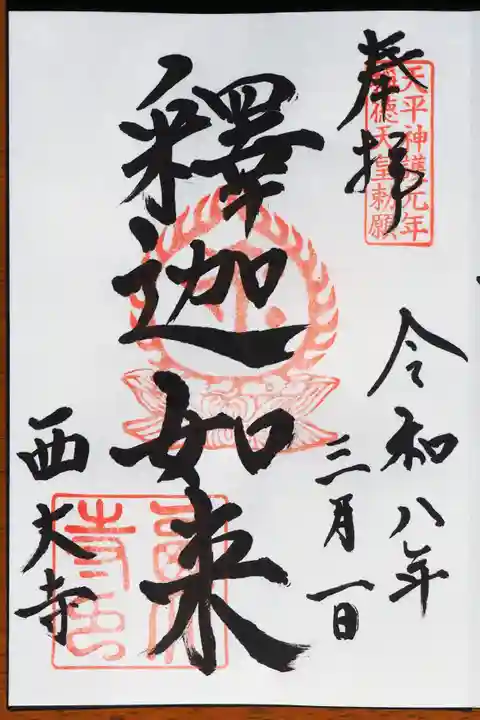 奉拝
天平神護元年
稱徳天皇勅願
令和八年
三月一日
釋迦如来
西大寺